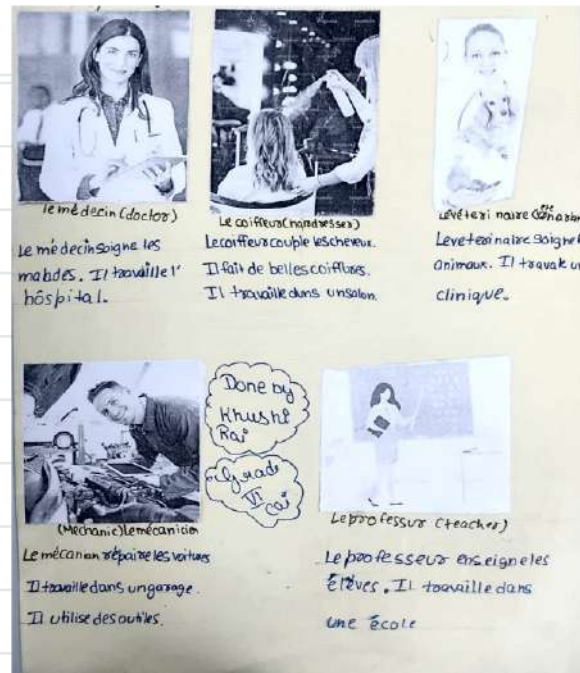 le médecin (doctor)
Le médecin soigne les
mabdes. Il travaille l'
hôspital.
Le coiffeur (hairdresser)
Le coiffeur couple les cheveux.
Il fait de belles coiffures.
Il travaille dans un salon.
Le véteri naire
Le veterinaire soigne
animaux. Il travak un
clinique.
Done by
Khushi
Rai
Grade
VI
(Mechanic) le mécanicien
Le mécanian répaire les voitures
Il travaille dans un garage.
Il utilise des outiles.
Le professur (teacher)
Le professeur enseigne les
élèves. Il travaille dans
une école